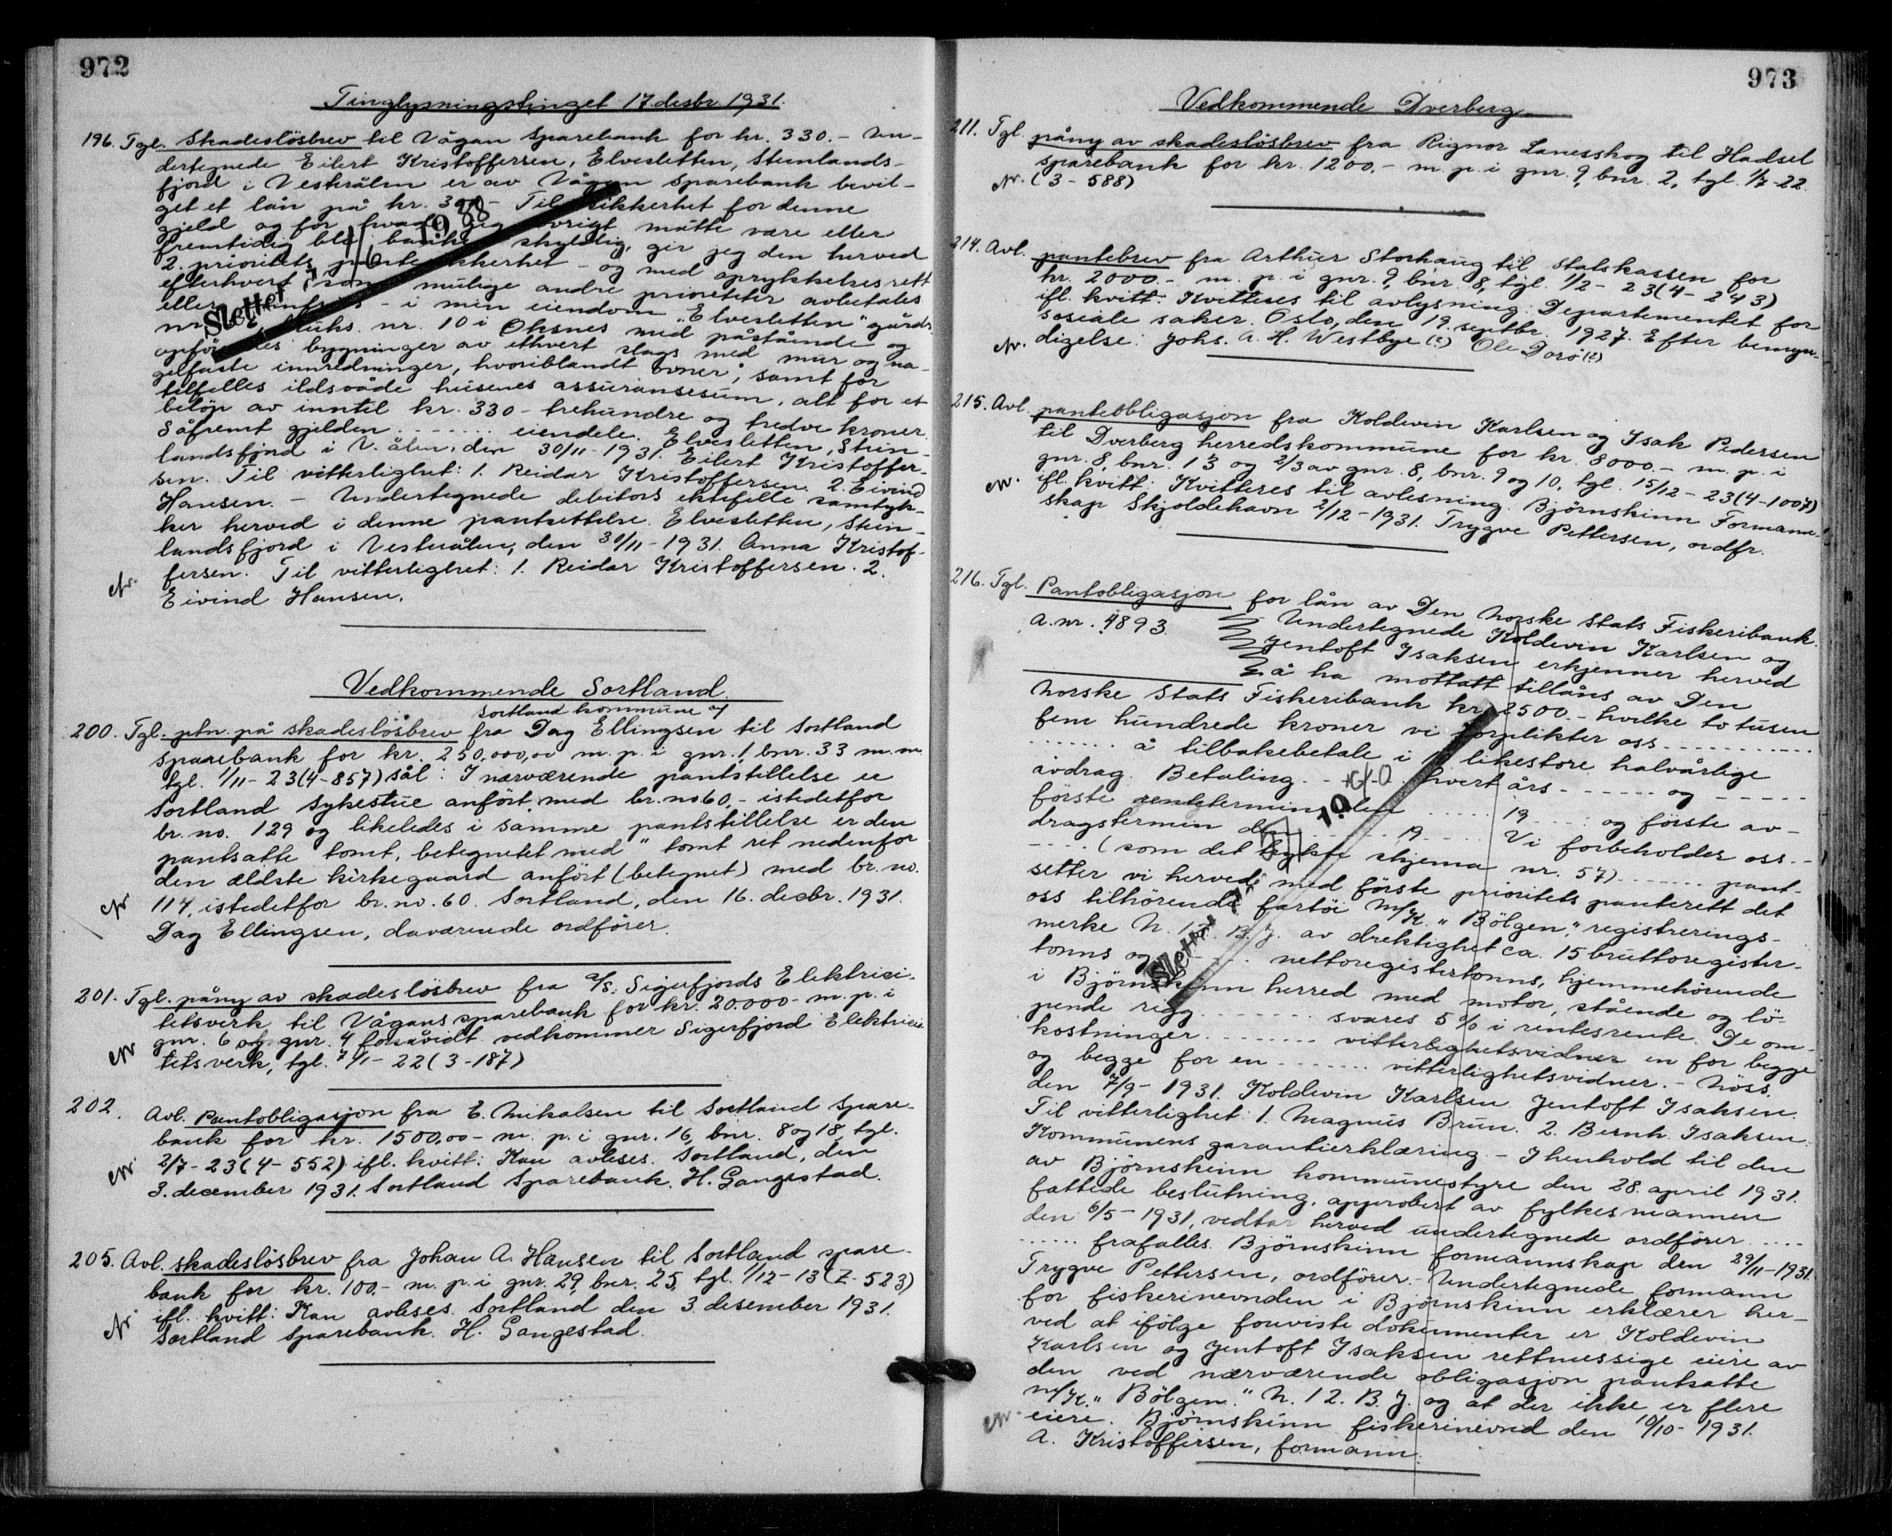 972
Tinglysningstinget 17. desbr. 1931.
196. Tgl. Skadeslösbrev til Vågan Sparebank for kr. 330.- Un-
dertegnede Eilert Kristoffersen, Elvesletten, Steinlands-
fjord i Vesterålen er av Vågan Sparebank bevil-
get et lån på kr. Til sikkerhet for denne
gjeld og for hvad jeg övrigt måtte være eller
fremtidig bli banken skyldig, gir jeg den herved
2. prioritets pantesikkerhet - og med oprykkelsesrett
efterhvert som mulige andre prioriteter avbetales
eller - i min eiendom "Elvesletten" gårds
nr. bruks. nr. 10 i Öksnes med påstående og
opförendes bygninger av ethvert slags med mur og na-
gelfaste innredninger, hvoriblandt ovner, samt for
tilfelles ildsvåde husenes assuransesum, alt for et
belöp av inntil kr. 330 - trehundre og tredve kroner.
Såfremt gjelden . . . . . . . eiendele. Elvesletten, Stein-
landsfjord i V.ålen, den 30/11 - 1931. Eilert Kristoffer-
sen. Til vitterlighet: 1. Reidar Kristoffersen. 2. Eivind
Hansen. - Undertegnede debitors ektefelle samtyk-
ker herved i denne pantsettelse. Elvesletten, Stein-
landsfjord i Vesterålen, den 30/11 - 1931. Anna Kristof-
fersen. Til vitterlighet: 1. Reidar Kristoffersen. 2.
Eivind Hansen.
Slettet 1/6 1988
Vedkommende Sortland.
Sortland kommune v/
200. Tgl. ptn. på skadeslösbrev fra Dag Ellingsen til Sortland
Sparebank for kr. 250,000,00 m. p. i gnr. 1, bnr. 33 m. m.
tgl. 1/11 - 23 (4 - 857) sål: I nærværende pantstillelse er
Sortland Sykestue anfört med br. no 60, - istedetfor
br. no. 129 og likeledes i samme pantstillelse er den
pantsatte tomt, betegnetet med "tomt ret nedenfor
den ældste kirkegaard anfört (betegnet) med br. no.
114, istedetfor br. no. 60. Sortland, den 16. desbr. 1931.
Dag Ellingsen, daværende ordförer.
201. Tgl. påny av skadeslösbrev fra A/S. Sigerfjords Elektrici-
tetsverk til Vågans sparebank for kr. 20.000 - m. p. i
gnr. 6 og gnr. 4 forsåvidt vedkommer Sigerfjord Elektrici-
tetsverk, tgl. 7/1 - 22 (3 - 187)
202. Avl. Pantobligasjon fra E. Nikalsen til Sortland Spare-
bank for kr. 1500,00 - m. p. i gnr. 16, bnr. 8 og 18, tgl.
2/7 - 23 (4 - 552) ifl. kvitt: Kan avleses. Sortland, den
3. december 1931. Sortland Sparebank. H. Gangestad.
205. Avl. skadeslösbrev fra Johan A. Hansen til Sortland spare-
bank for kr. 100.- m. p. i gnr. 29, bnr. 25, tgl. 1/12 - 13 (Z. 523)
ifl. kvitt: Kan avleses. Sortland den 3. desember 1931.
Sortland Sparebank. H. Gangestad.
973
Vedkommende Dverberg.
211. Tgl. påny av skadeslösbrev fra Rignor Lanesskog til Hadsel
Sparebank for kr. 1200,- m. p. i gnr. 9, bnr. 2, tgl. 1/7 - 22.
(3 - 588)
214. Avl. pantebrev fra Arthur Storhaug til Statskassen for
kr. 2000.- m. p. i gnr. 9, bnr. 8, tgl. 1/2 - 23 (4 - 243)
ifl. kvitt: Kvitteres til avlysning. Departementet for
sosiale saker. Oslo, den 19. septbr. 1927. Efter bemyn-
digelse: Johs. A. H. Westbye (?) Ole Dorö (?)
215. Avl. panteobligasjon fra Koldevin Karlsen og Isak Pedersen
til Dverberg herredskommune for kr. 8000.- m. p. i
gnr. 8, bnr. 13 og 2/3 av gnr. 8, bnr. 9 og 10, tgl. 15/12 - 23 (4 - 1007)
ifl. kvitt: Kvitteres til avlesning. Björnskinn Formann-
skap Skjoldehavn 2/12 - 1931. Trygve Pettersen, ordfr.
216. Tgl. Pantobligasjon for lån av Den Norske Stats Fiskeribank.
A. nr. 4893. Undertegnede Koldevin Karlsen og
Jentoft Isaksen erkjenner herved
å ha mottatt tillåns av Den
Norske Stats Fiskeribank kr. 2500.- hvilke to tusen
fem hundrede kroner vi forplikter oss . . . . . . . .
. . . . . . . å tilbakebetale i likestore halvårlige
avdrag. Betaling . . . hvert års . . . . . . og . . . . . .
förste rentetermin den . . . . . 19 . . . og förste av-
dragstermin den . . . . . . 19 . . . . Vi forbeholder oss . .
. . . . (som det trykte skjema nr. 57) . . . . . . pant-
setter vi herved med förste prioritets panterett det
oss tilhörende fartöi M/K. "Bölgen", registrerings-
merke N. 12. B. J. av drektighet ca. 15 bruttoregister-
tonns og . . . . nettoregistertonns, hjemmehörende
i Björnskinn herred med motor, stående og lö-
pende rigg . . . . . . . svares 5 % i rentesrente. De om-
kostninger . . . . . . . vitterlighetsvidner en for begge
og begge for en . . . . . . vitterlighetsvidner. - Nöss.
den 7/9 - 1931. Koldevin Karlsen. Jentoft Isaksen.
Til vitterlighet: 1. Magnus Brun. 2. Bernh. Isaksen.
Kommunens garantierklæring. - I henhold til den
av Björnskinn kommunestyre den 28. april 1931.
fattede beslutning, approbert av fylkesmannen
den 6/5 - 1931, vedtar herved undertegnede ordförer . . . .
. . . . . . frafalles. Björnskinn formannskap den 29/11 - 1931.
Trygve Pettersen, ordförer. - Undertegnede formann
for fiskerinevnden i Björnskinn erklærer her-
ved at ifölge foreviste dokumenter er Koldevin
Karlsen og Jentoft Isaksen rettmessige eiere av
den ved nærværende obligasjon pantsatte
M/K. "Bölgen". N. 12. B. J. og at der ikke er flere
eiere. Björnskinn fiskerinevnd den 10/10 - 1931.
A. Kristoffersen, formann.
Slettet